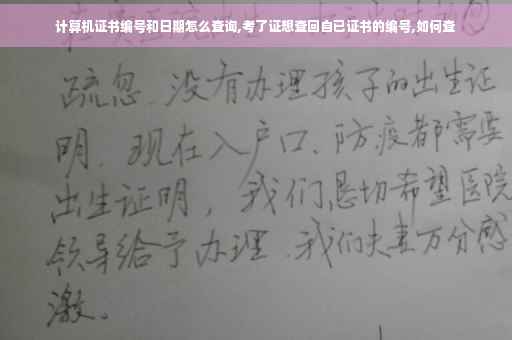 计算机证书编号和日期怎么查询,考了证想查回自已证书的编号,如何查
疏忽、没有办理孩子的出生证
明、现在入户口、防疫都需要
出生证明，我们恳切希望医院
领导给予办理、我们夫妻万分感
激。